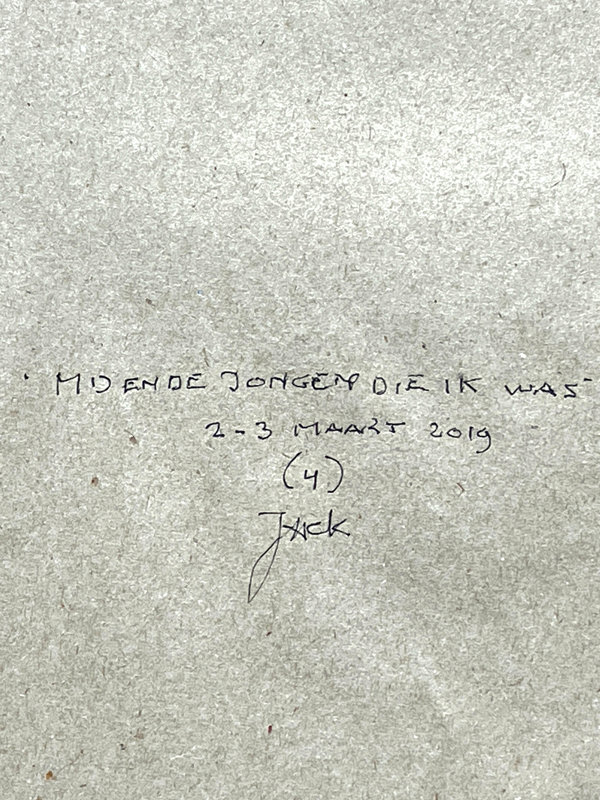 MIJ EN DE JONGEN DIE IK WAS
2-3 MAART 2019
(4)
Jack